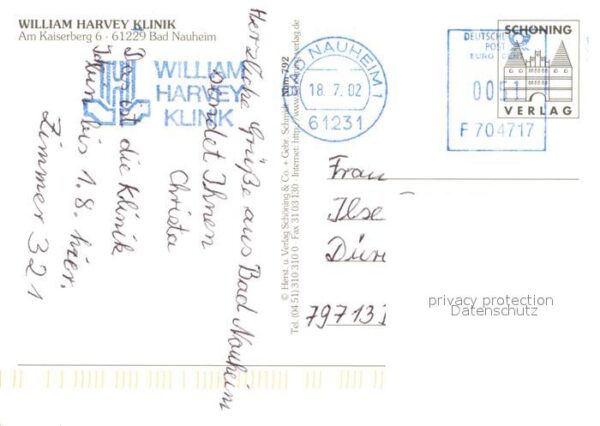 WILLIAM HARVEY KLINIK
Am Kaiserberg 6 · 61229 Bad Nauheim
WILLIAM
HARVEY
KLINIK
BAD NAUHEIM 1
18.7.02
61231
DEUTSCHE
POST
EURO CENT
0051
F 704717
SCHÖNING
VERLAG
Herzliche Grüße aus Bad Nauheim
sendet Ihnen
Christa
Das ist die Klinik
bin bis 1.8. hier.
Zimmer 321
© Herst. u. Verlag Schöning & Co. + Gebr. Schmidt
Tel. (04 51) 310 310 0 · Fax 31 03 130 · Internet: http://www.schoening-verlag.de
Nhm-792
Frau
Ilse
Dür
79713
privacy protection
Datenschutz